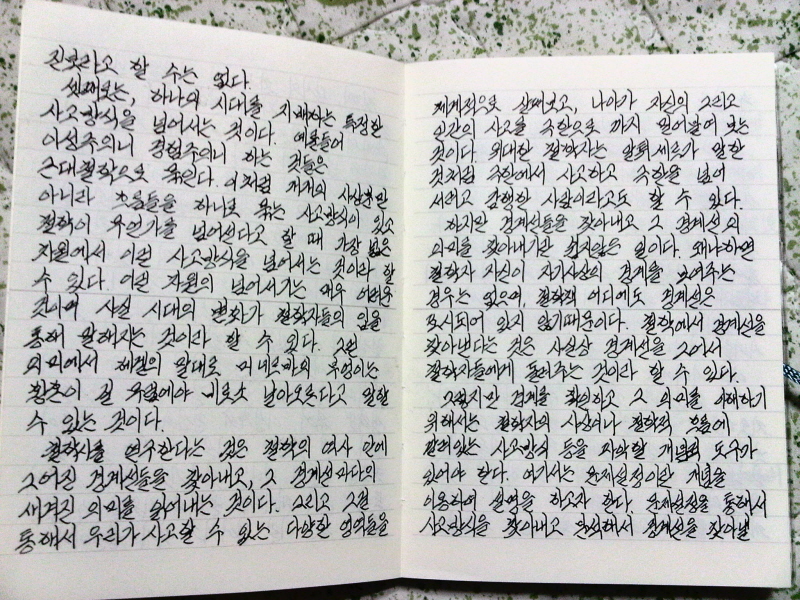 진보라고 할 수는 없다.
셋째로는, 하나의 시대를 지배하는 특정한
사고방식을 넘어서는 것이다. 예를들어
이성주의니 경험주의니 하는 것들은
근대철학으로 묶인다. 이처럼 개개의 사상뿐만
아니라 흐름들을 하나로 묶는 사고방식이 있고
철학이 무언가를 넘어선다고 할 때 가장 넓은
차원에서 이런 사고방식을 넘어서는 것이라 할
수 있다 이런 차원의 넘어서기는 매우 어려운
것이며 사실 시대의 변화가 철학자들의 입을
통해 말해지는 것이라 할 수 있다. 그런
의미에서 헤겔의 말대로 미네르바의 부엉이는
황혼이 질 무렵에야 비로소 날아오른다고 말할
수 있는 것이다.
철학사를 연구한다는 것은 철학의 역사 안에
그어진 경계선들을 찾아내고, 그 경계선마다의
새겨진 의미를 읽어내는 것이다. 그리고 그걸
통해서 우리가 사고할 수 있는 다양한 영역들을
체계적으로 살펴보고, 나아가 자신의 그리고
인간의 사고를 극한으로 까지 밀어붙여 보는
것이다. 위대한 철학자는 알튀세르가 말한
것처럼 극한에서 사고하고 극한을 넘어
서려고 감행한 사람이라고도 할 수 있다.
하지만 경계선들을 찾아내고 그 경계선의
의미를 찾아내기란 쉽지않은 일이다. 왜냐하면
철학자 자신이 자기사상의 경계를 보여주는
경우는 없으며, 철학책 어디에도 경계선은
표시되어 있지 않기때문이다. 철학에서 경계선을
찾아낸다는 것은 사실상 경계선을 그어서
철학자들에게 돌려주는 것이라 할 수 있다.
그렇지만 경계를 확인하고 그 의미를 이해하기
위해서는 철학자의 사상이나 철학의 흐름에
깔려있는 사고방식 등을 파악할 개념의 도구가
있어야 한다. 여기서는 문제설정이란 개념을
이용하여 설명을 하고자 한다. 문제설정을 통해서
사고방식을 찾아내고 분석해서 경계선을 찾아낼